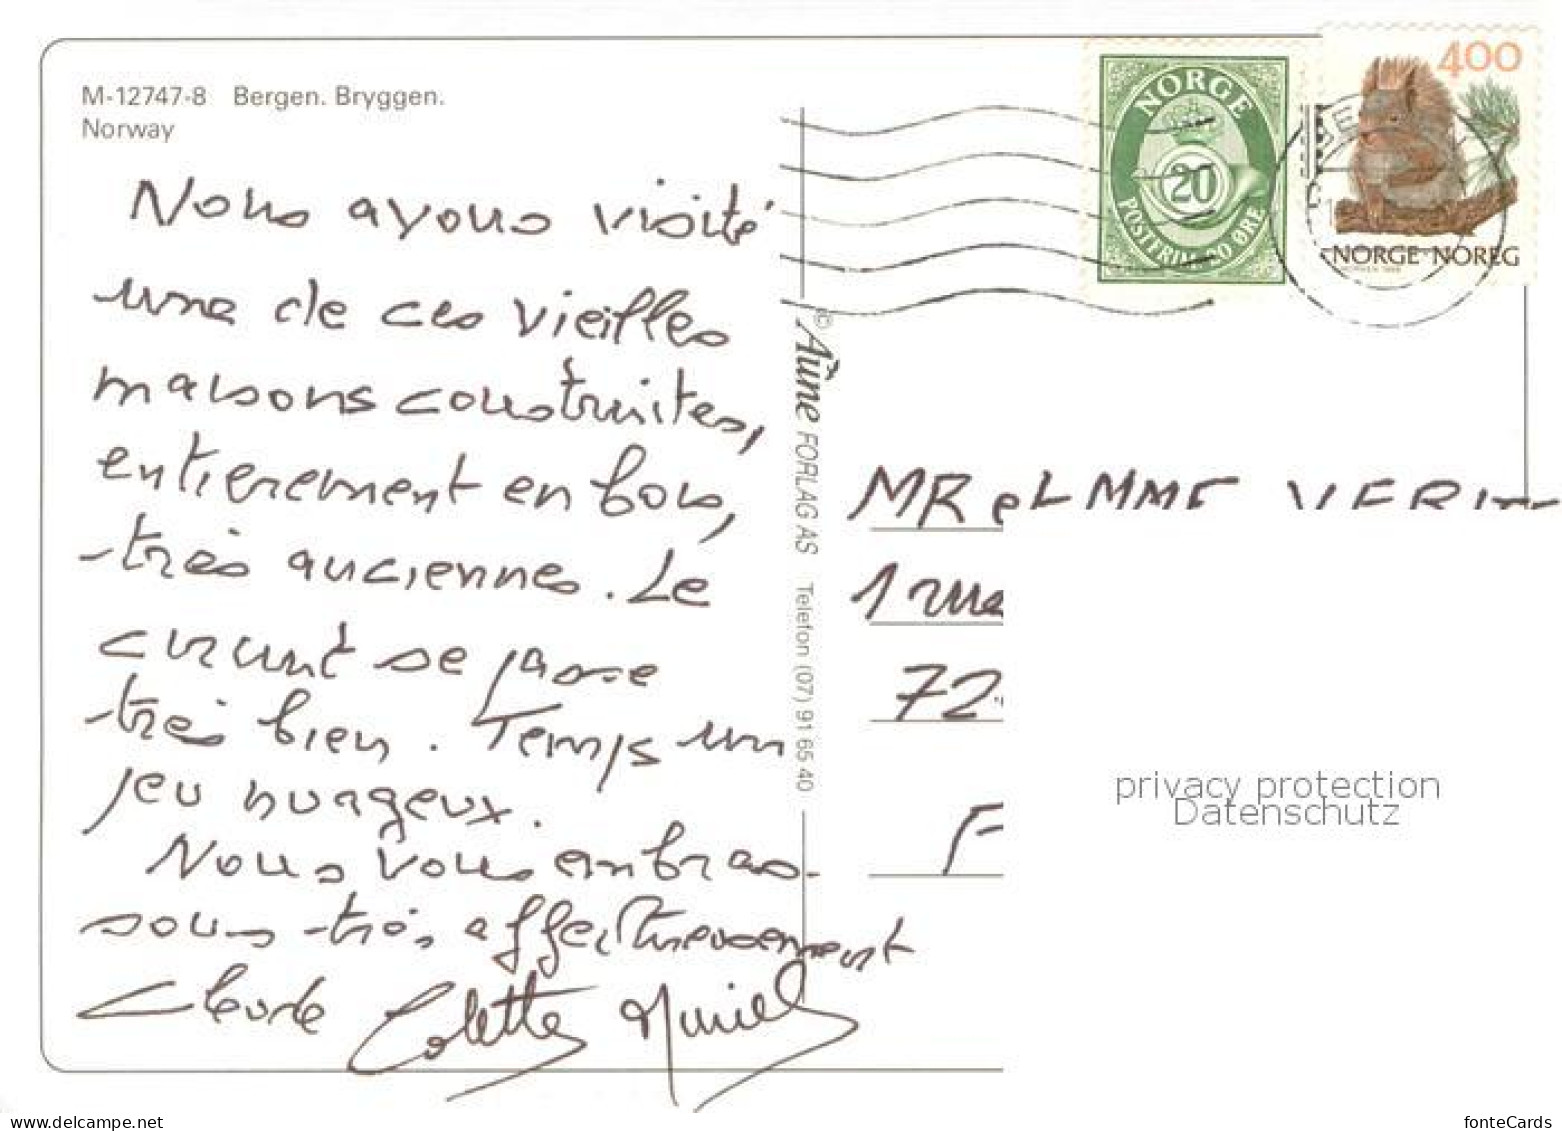 M-12747-8 Bergen. Bryggen.
Norway
Nous avons visité
une de ces vieilles
maisons construites,
entièrement en bois,
très anciennes. Le
circuit se passe
très bien. Temps un
peu nuageux.
Nous vous embras-
sons très affectueusement
Claude Colette Muriel
© Aune FORLAG AS Telefon (07) 91 65 40
NORGE
20
POSTFRIM. 20 ØRE
400
NORGE·NOREG
MR et MME
1 rue
72
F
privacy protection
Datenschutz
www.delcampe.net
fonteCards